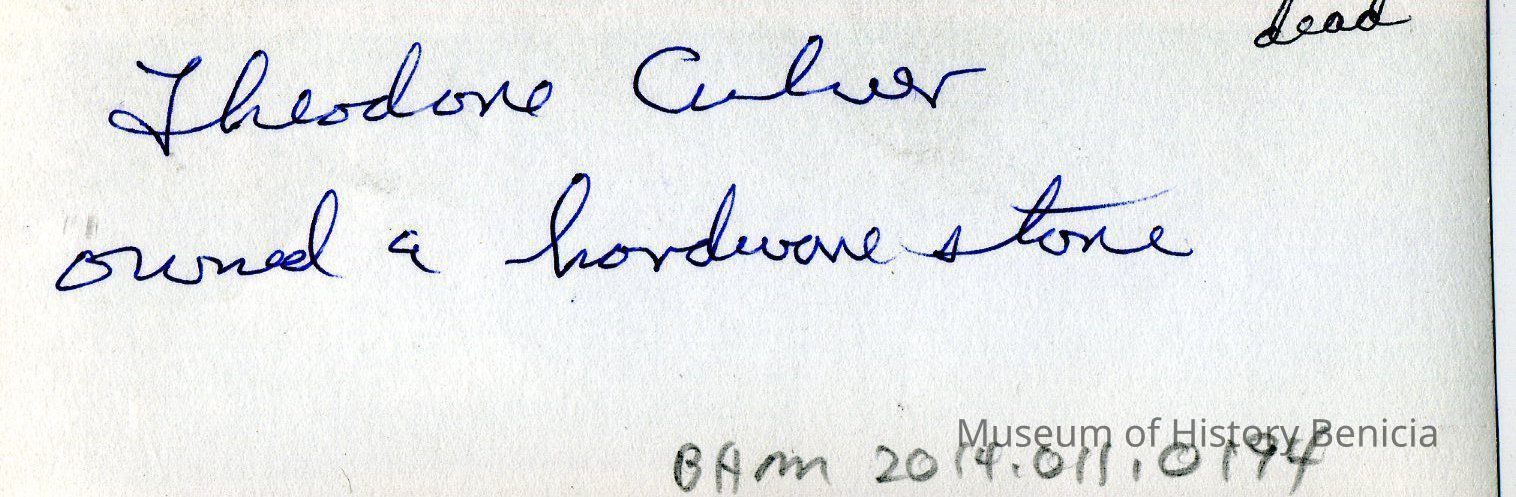 dead
Theodore Culver
owned a hardware store
Museum of History Benicia
BAM 2014.011.0194